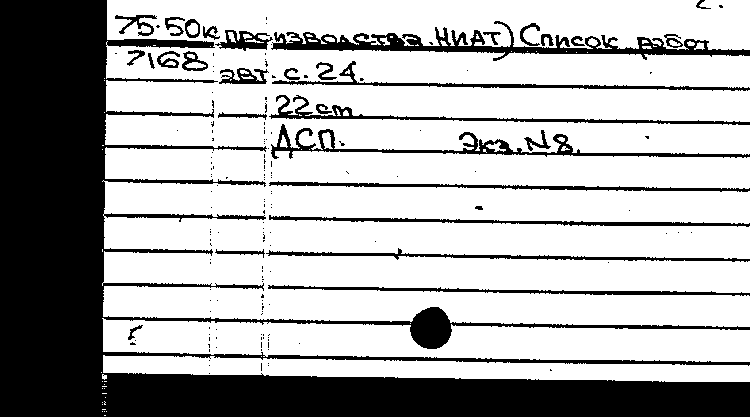 2.
75-50к производства. НИАТ) Список работ
7168 авт. с. 24.
22 см.
ДСП. Экз. N8.